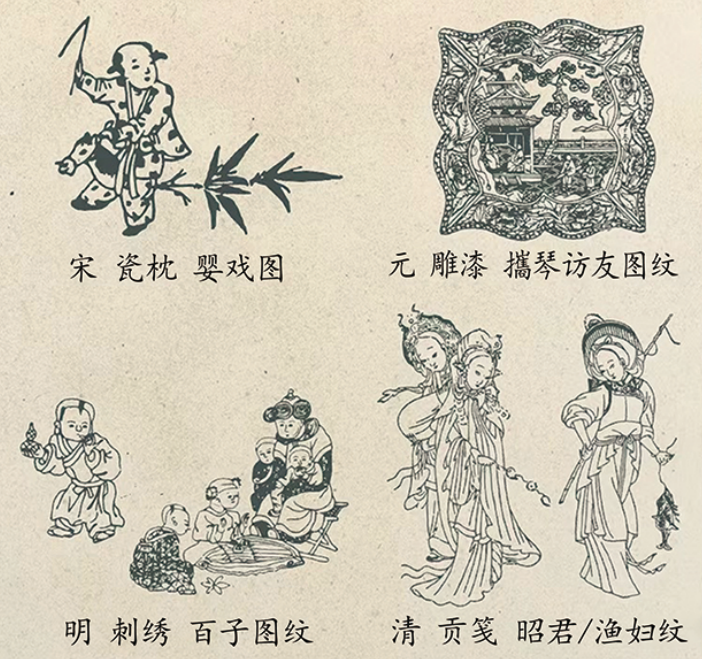 宋 瓷枕 婴戏图
元 雕漆 攜琴访友图纹
明 刺绣 百子图纹
清 贡笺 昭君/渔妇纹